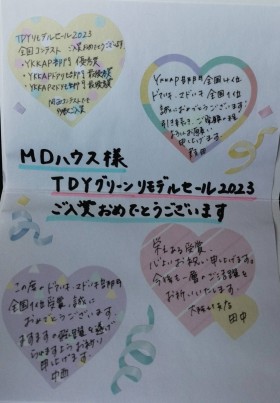 TDYリモデルセール2023
全国コンテスト ご入賞おめでとうございます
・YKKAP部門 優秀賞
・YKKAPドアリモ部門 最優秀賞
・YKKAPマドリモ部門 最優秀賞
YKKAP部門 全国4位
誠におめでとうございます。
引き続き、ご愛顧の程
ようにお願い
申し上げます。
MDハウス様
TDYグリーンリモデルセール2023
ご入賞おめでとうございます
この度のドアリモ・マドリモ部門
全国1位受賞、誠に
おめでとうございます。
ますますの発展を遂げ
られますようお祈り
申し上げます。
栄えある受賞、
心よりお祝い申し上げます。
今後も一層のご活躍を
お祈りいたします。
田中